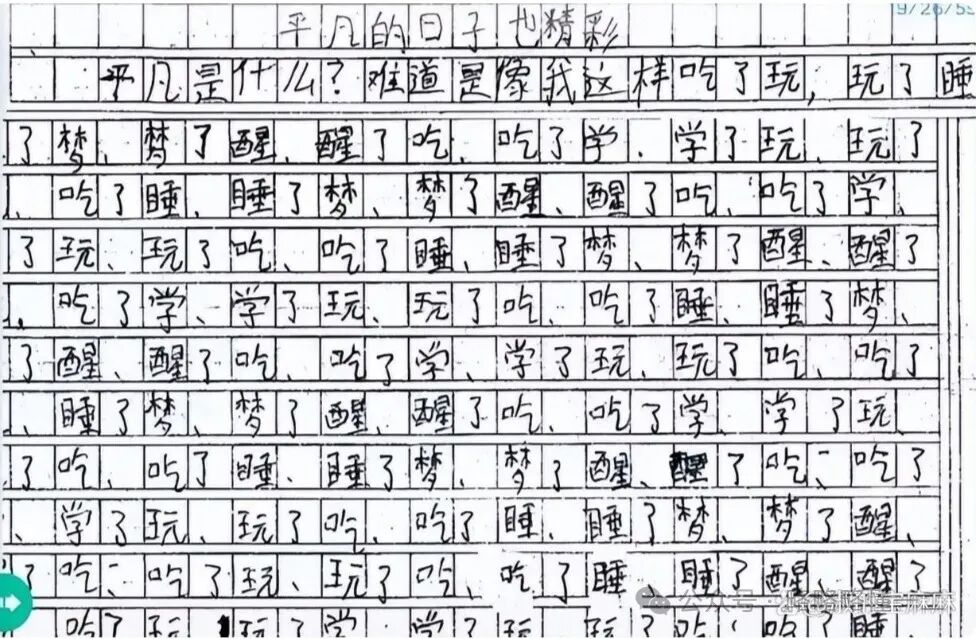 19/26/55
平凡的日子也精彩
平凡是什么？难道是像我这样吃了玩，玩了睡
了梦、梦了醒、醒了吃、吃了学、学了玩、玩了
、吃了睡、睡了梦、梦了醒、醒了吃、吃了学、
了玩、玩了吃、吃了睡、睡了梦、梦了醒、醒了
、吃了学、学了玩、玩了吃、吃了睡、睡了梦、
了醒、醒了吃、吃了学、学了玩、玩了吃、吃了
、睡了梦、梦了醒、醒了吃、吃了学、学了玩
了吃、吃了睡、睡了梦、梦了醒、醒了吃、吃了
、学了玩、玩了吃、吃了睡、睡了梦、梦了醒
了吃、吃了玩、玩了吃、吃了睡、睡了醒、醒了
吃了玩、玩了学、学了玩、玩了吃、吃了睡
公众号